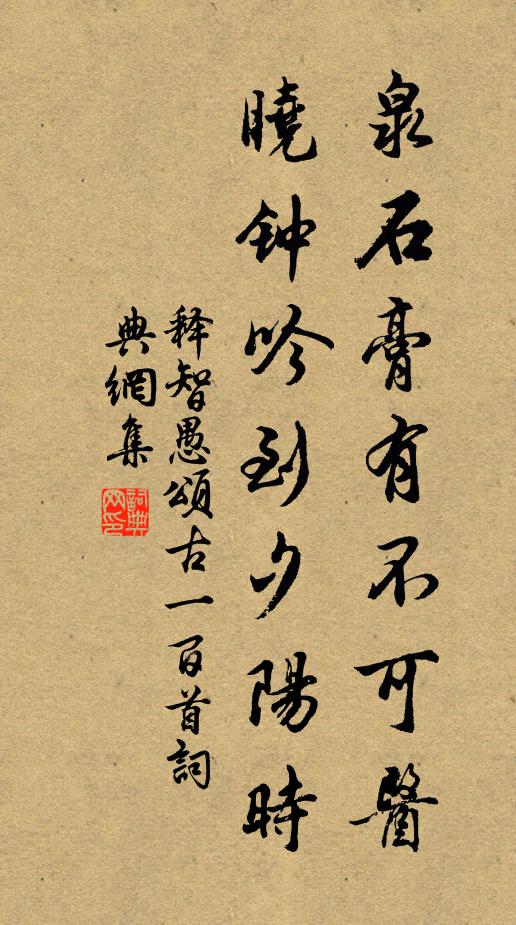 泉石膏有不可醫
曉钟吟到夕陽時
释智愚頌古一百首詞
典網集
詞典网印